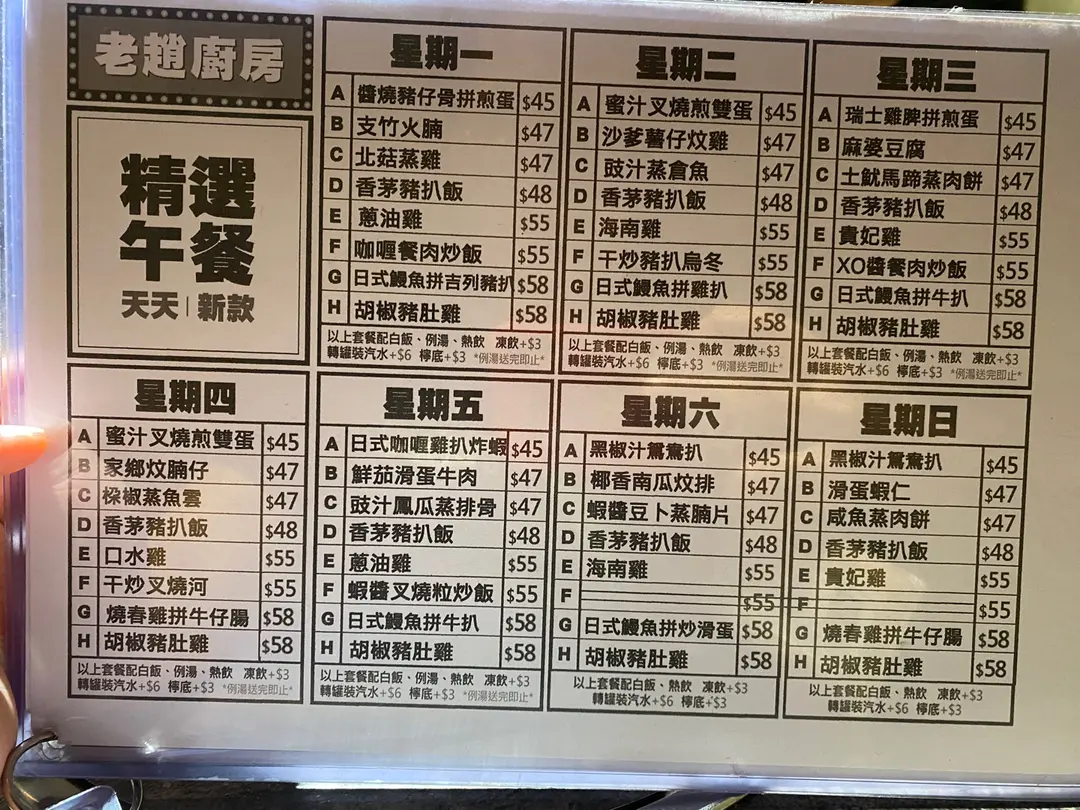 老趙廚房
精選
午餐
天天|新款
星期一
A 醬燒豬仔骨拼煎蛋 $45
B 支竹火腩 $47
C 北菇蒸雞 $47
D 香茅豬扒飯 $48
E 蔥油雞 $55
F 咖喱餐肉炒飯 $55
G 日式鰻魚拼吉列豬扒 $58
H 胡椒豬肚雞 $58
以上套餐配白飯、例湯、熱飲 凍飲+$3
轉罐裝汽水+$6 檸底+$3 *例湯送完即止*
星期二
A 蜜汁叉燒煎雙蛋 $45
B 沙爹薯仔炆雞 $47
C 豉汁蒸倉魚 $47
D 香茅豬扒飯 $48
E 海南雞 $55
F 干炒豬扒烏冬 $55
G 日式鰻魚拼雞扒 $58
H 胡椒豬肚雞 $58
以上套餐配白飯、例湯、熱飲 凍飲+$3
轉罐裝汽水+$6 檸底+$3 *例湯送完即止*
星期三
A 瑞士雞脾拼煎蛋 $45
B 麻婆豆腐 $47
C 土魷馬蹄蒸肉餅 $47
D 香茅豬扒飯 $48
E 貴妃雞 $55
F XO醬餐肉炒飯 $55
G 日式鰻魚拼牛扒 $58
H 胡椒豬肚雞 $58
以上套餐配白飯、例湯、熱飲 凍飲+$3
轉罐裝汽水+$6 檸底+$3 *例湯送完即止*
星期四
A 蜜汁叉燒煎雙蛋 $45
B 家鄉炆腩仔 $47
C 椒蒸魚雲 $47
D 香茅豬扒飯 $48
E 口水雞 $55
F 干炒叉燒河 $55
G 燒春雞拼牛仔腸 $58
H 胡椒豬肚雞 $58
以上套餐配白飯、例湯、熱飲 凍飲+$3
轉罐裝汽水+$6 檸底+$3 *例湯送完即止*
星期五
A 日式咖喱雞扒炸蝦 $45
B 鮮茄滑蛋牛肉 $47
C 豉汁鳳瓜蒸排骨 $47
D 香茅豬扒飯 $48
E 蔥油雞 $55
F 蝦醬叉燒粒炒飯 $55
G 日式鰻魚拼牛扒 $58
H 胡椒豬肚雞 $58
以上套餐配白飯、例湯、熱飲 凍飲+$3
轉罐裝汽水+$6 檸底+$3 *例湯送完即止*
星期六
A 黑椒汁鴛鴦扒 $45
B 椰香南瓜炆排 $47
C 蝦醬豆卜蒸腩片 $47
D 香茅豬扒飯 $48
E 海南雞 $55
F $55
G 日式鰻魚拼炒滑蛋 $58
H 胡椒豬肚雞 $58
以上套餐配白飯、熱飲 凍飲+$3
轉罐裝汽水+$6 檸底+$3
星期日
A 黑椒汁鴛鴦扒 $45
B 滑蛋蝦仁 $47
C 咸魚蒸肉餅 $47
D 香茅豬扒飯 $48
E 貴妃雞 $55
F $55
G 燒春雞拼牛仔腸 $58
H 胡椒豬肚雞 $58
以上套餐配白飯、熱飲 凍飲+$3
轉罐裝汽水+$6 檸底+$3